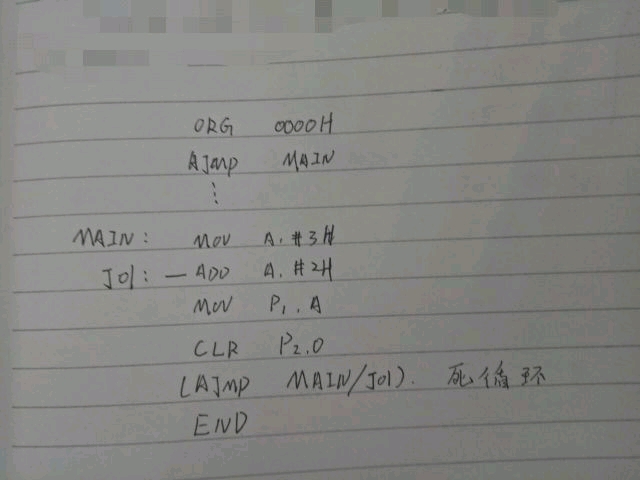 ORG 0000H
AJMP MAIN
⋮
MAIN: MOV A, #3H
J01: — ADD A, #2H
MOV P1, A
CLR P2.0
(AJMP MAIN/J01). 死循环
END